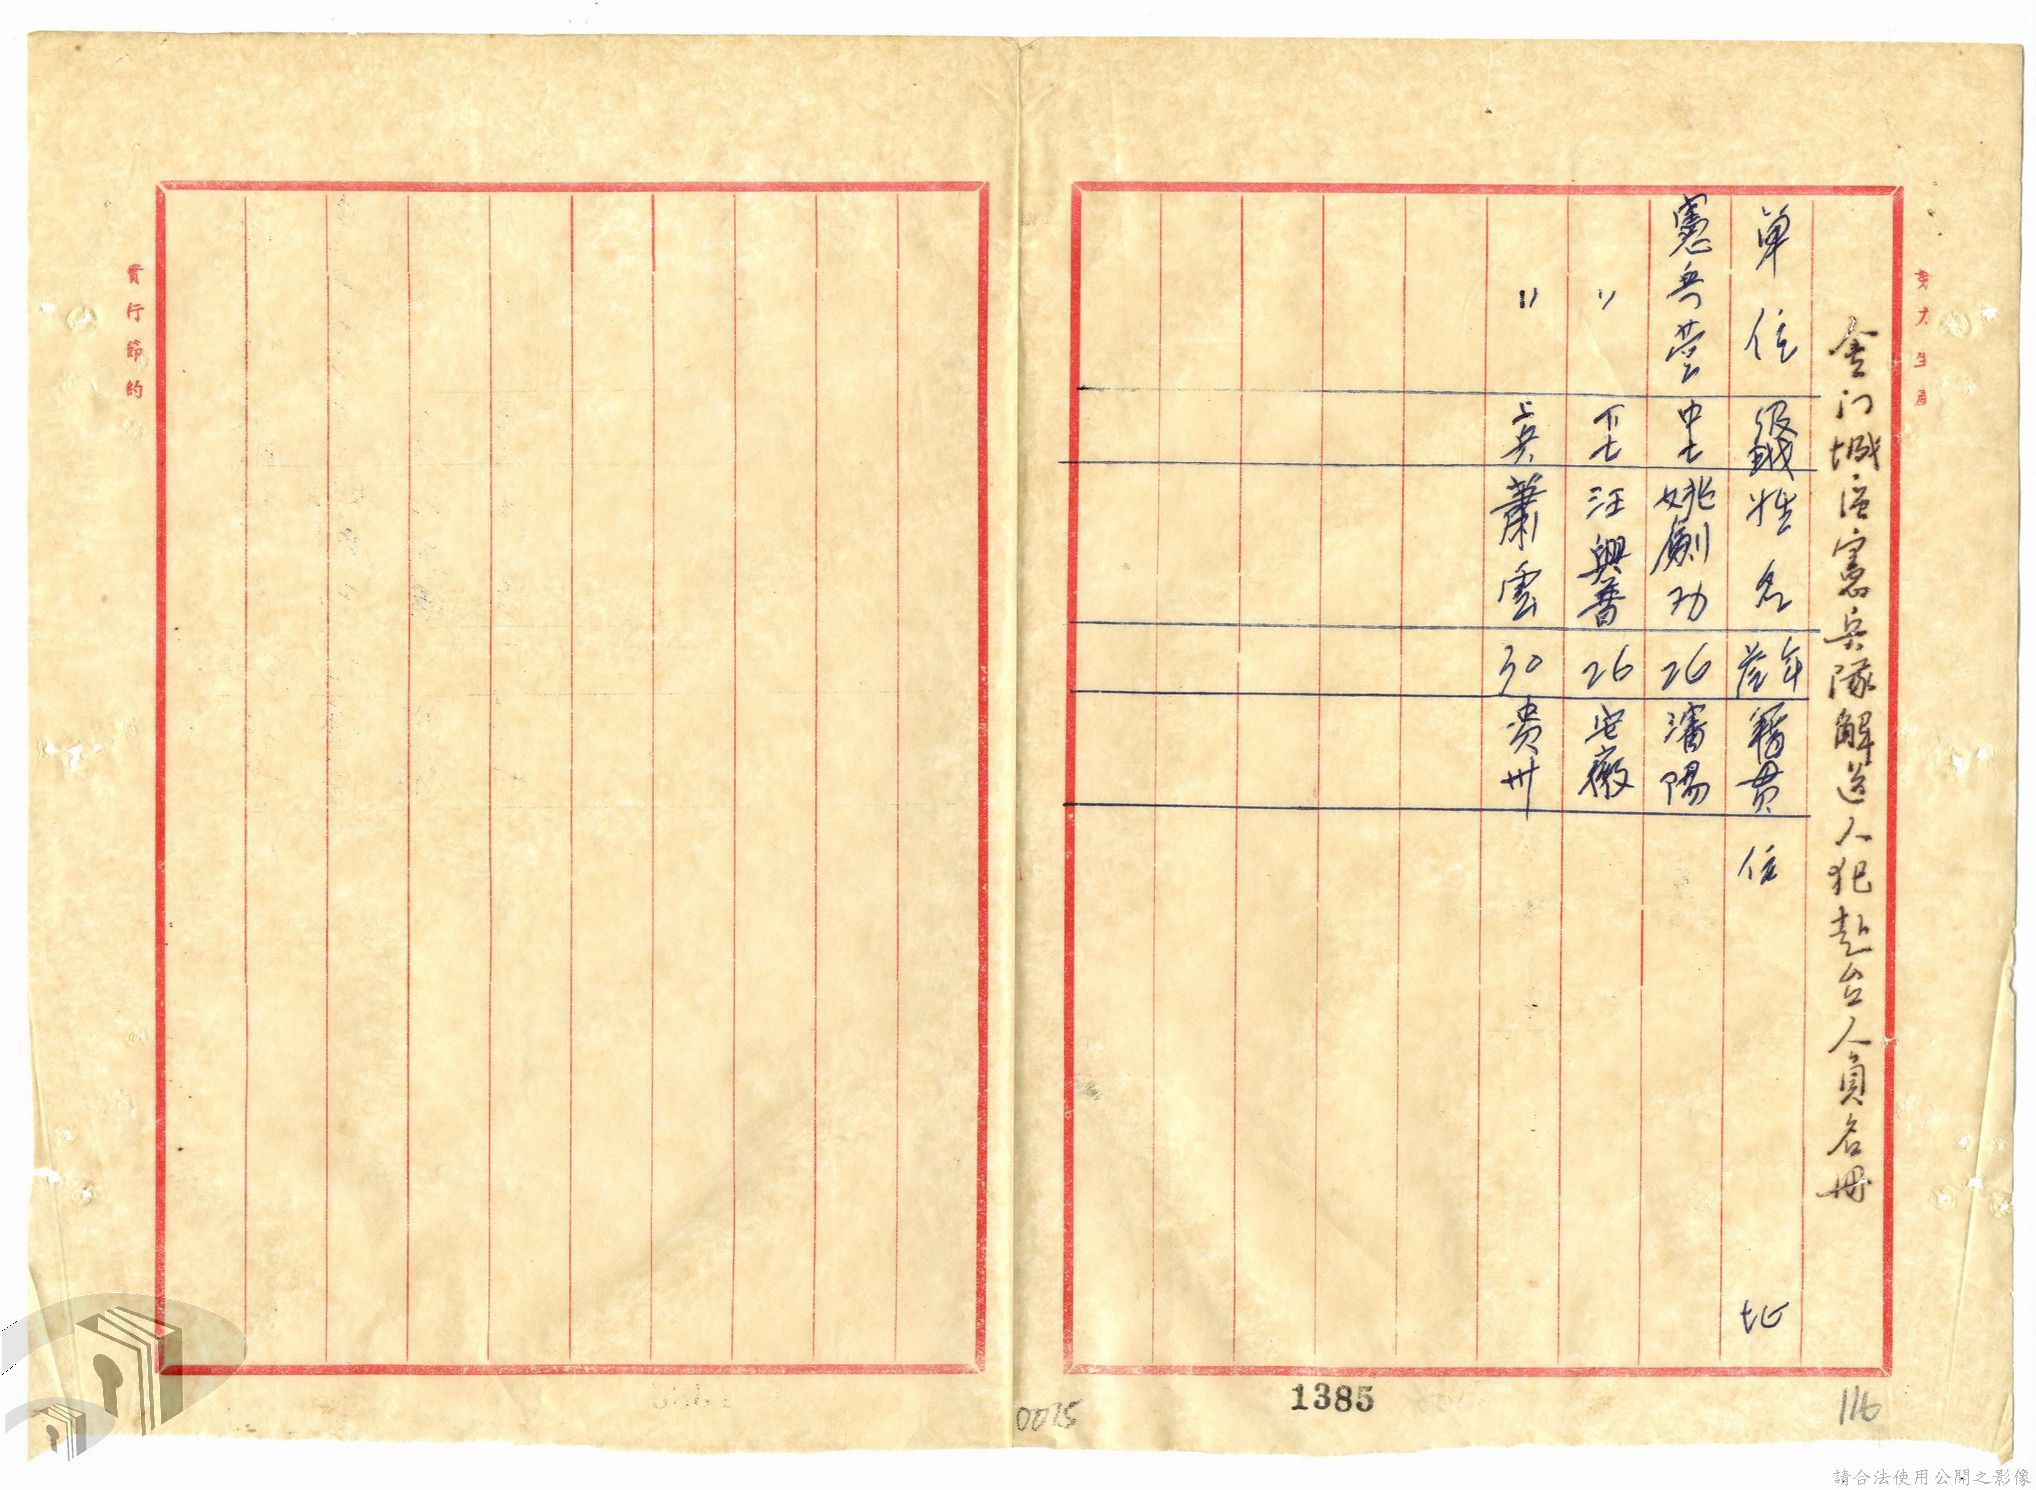 努力生產
金门城區憲兵隊解送人犯赴台人員名冊
單位 級職 姓名 年㱑 籍貫 住址
憲兵營 中士 姚劍功 26 瀋陽
〃 下士 汪興普 26 安徽
〃 上兵 蕭雲 30 贵州
實行節約
1385
0075
116
請合法使用公開之影像